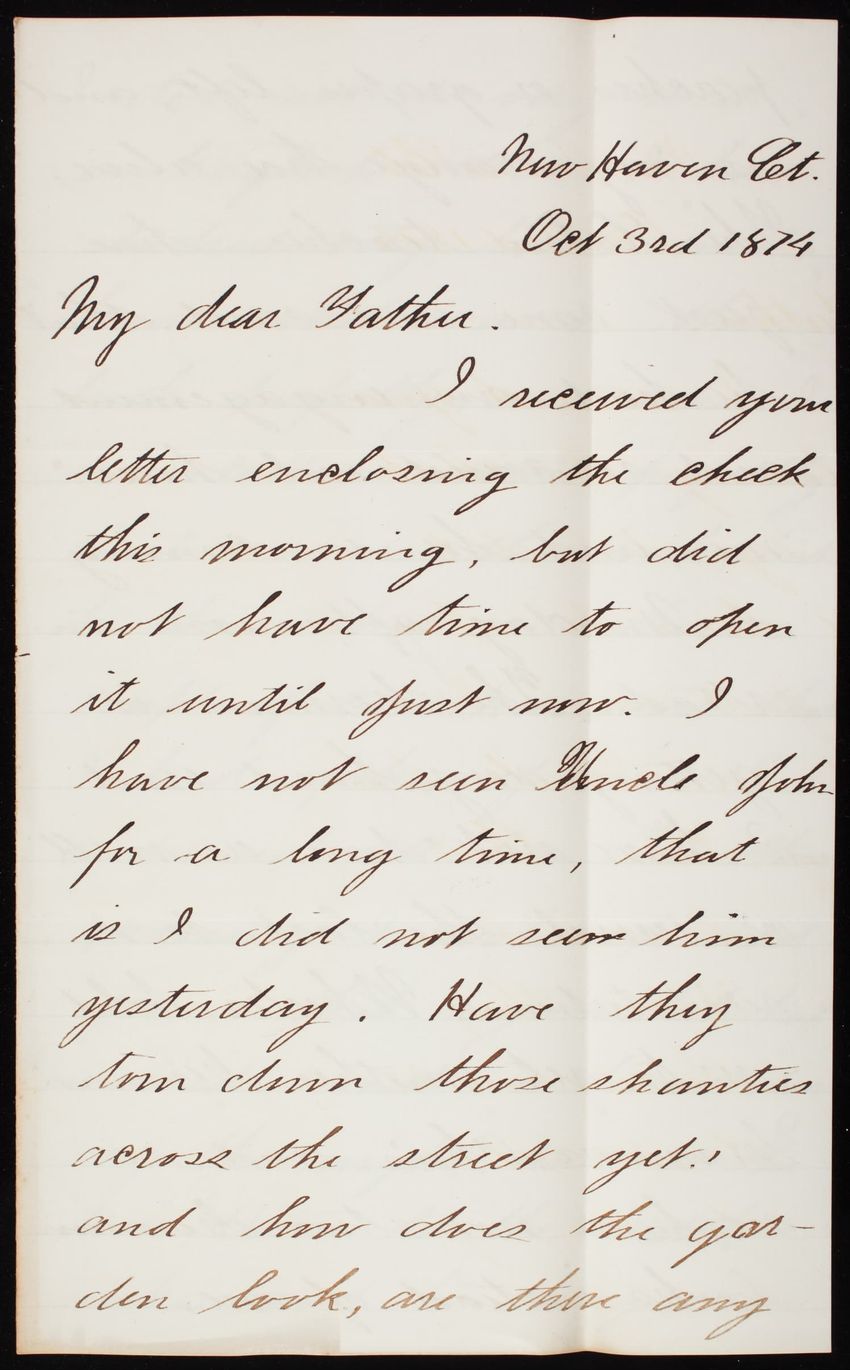 New Haven Ct.
Oct 3rd 1874
My dear Father.
I received your
letter enclosing the check
this morning, but did
not have time to open
it until just now. I
have not seen Uncle John
for a long time, that
is I did not seen him
yesterday. Have they
torn down those shanties
across the street yet?
and how does the gar-
den look, are there any